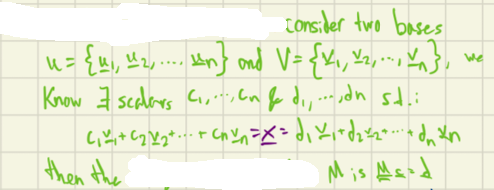 consider two bases
u = {u̲₁, u̲₂, .... u̲n} and V = {v̲₁, v̲₂, ..., v̲n}, we
Know ∃ scalars c₁, ..., cn & d₁, ..., dn s.t.:
c₁v̲₁ + c₂v̲₂ + ... + cnv̲n = x̲ = d₁v̲₁ + d₂v̲₂ + ... + dnv̲n
then the M is M̲ s = d